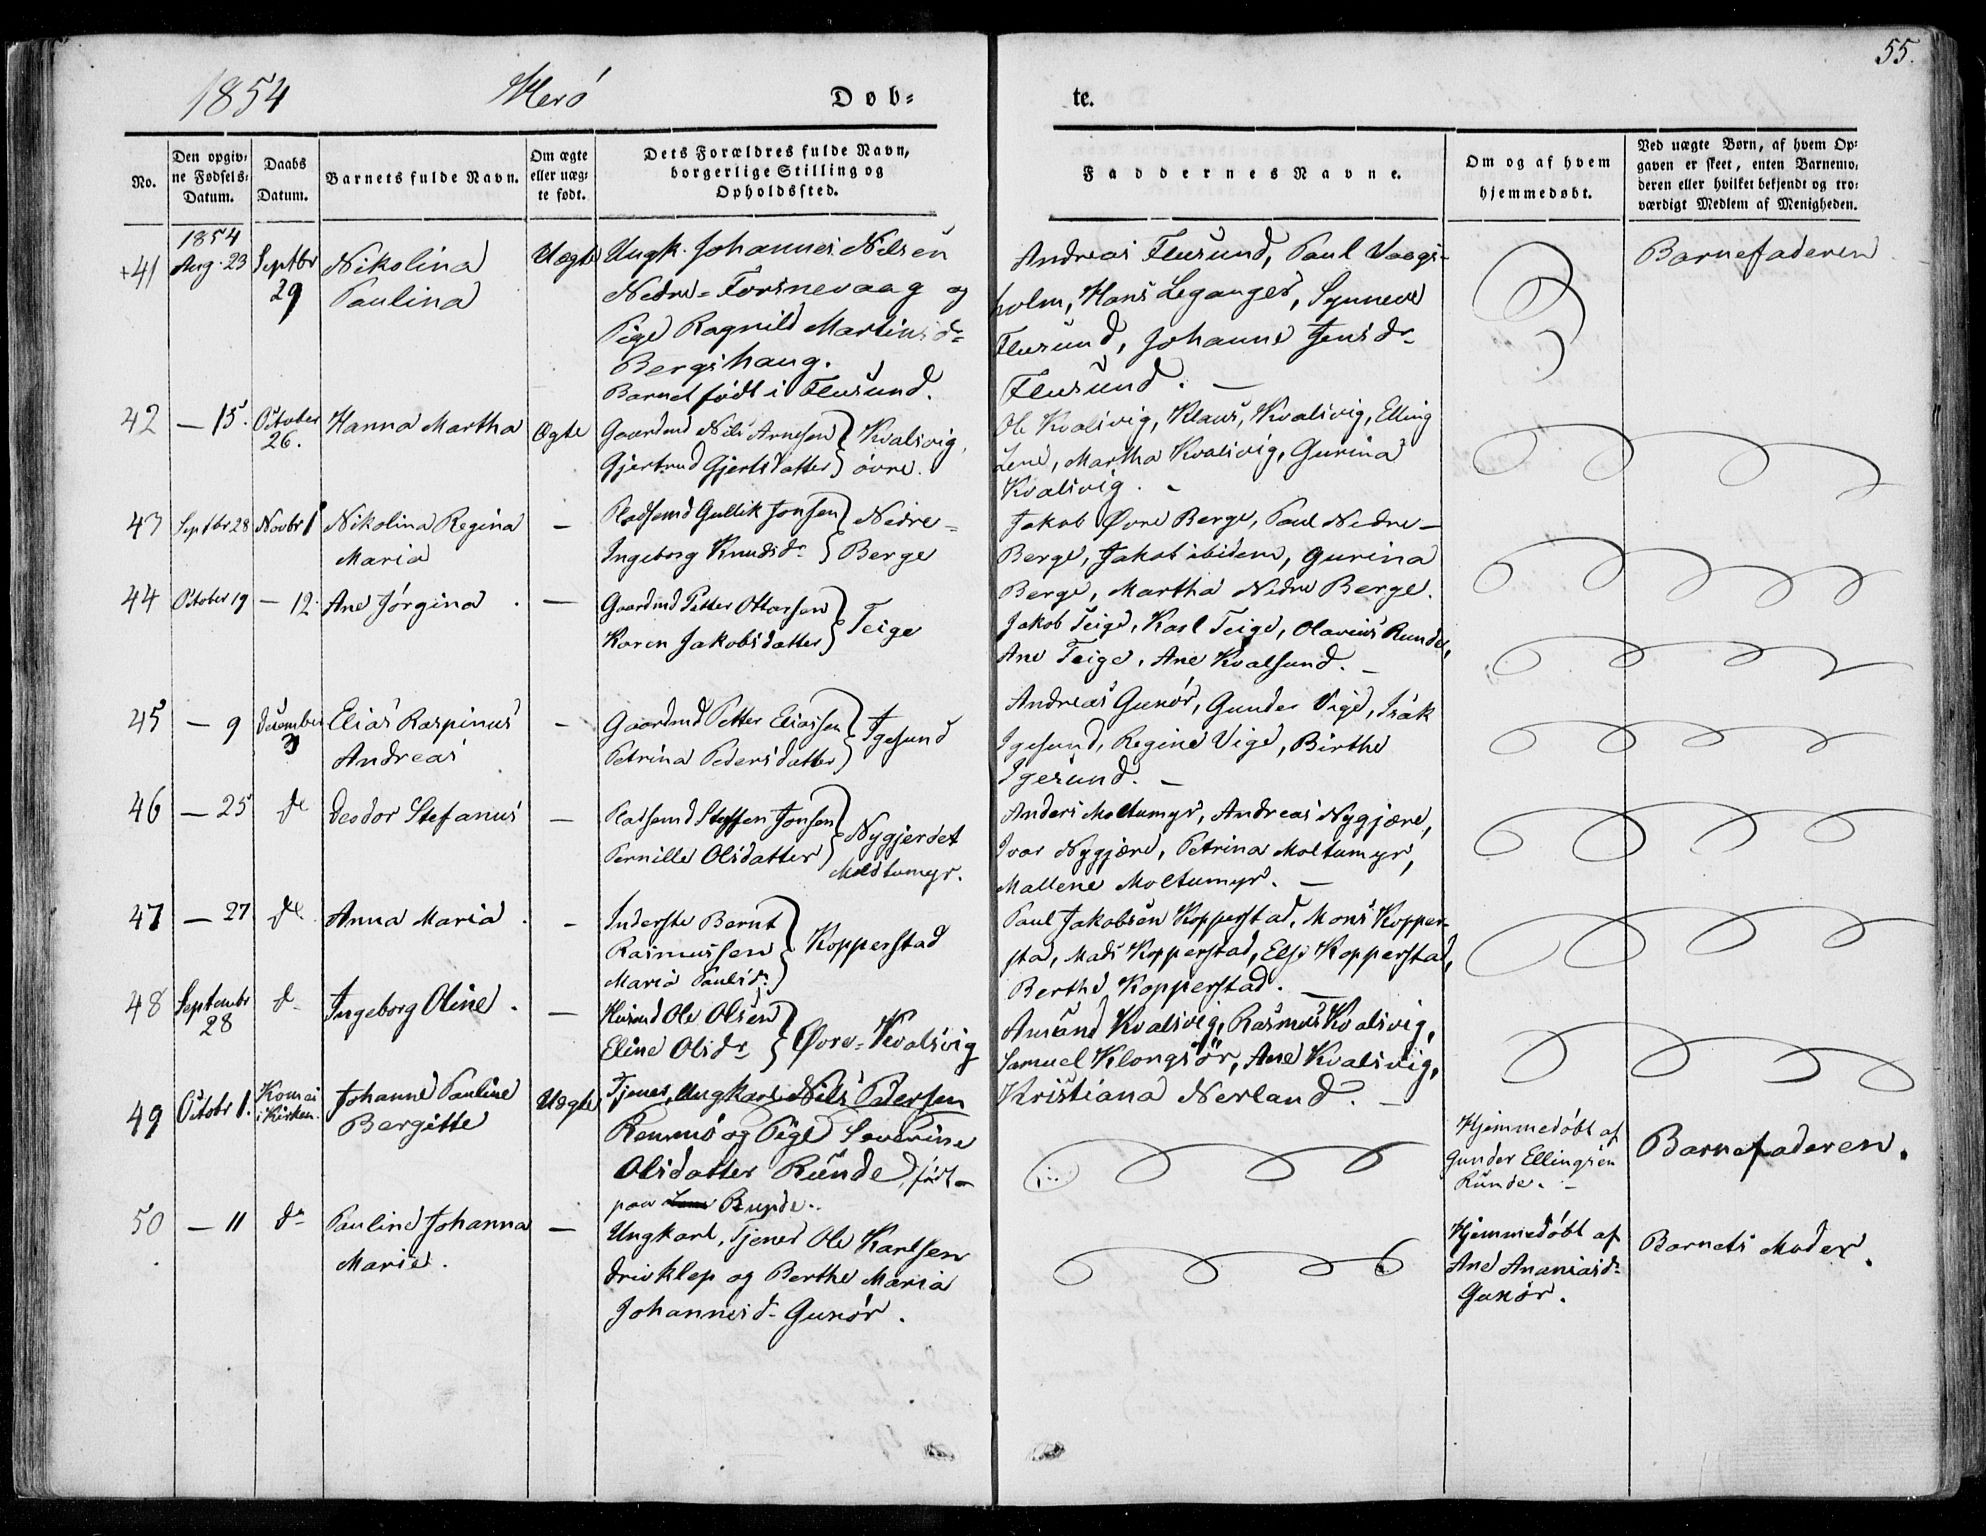 55.
1854 Herö Døb- te.
No.
Den opgiv-
ne Fødsels-
Datum.
Daabs
Datum.
Barnets fulde Navn.
Om ægte
eller uæg-
te født.
Dets Forældres fulde Navn,
borgerlige Stilling og
Opholdssted.
Faddernes Navne.
Om og af hvem
hjemmedøbt.
Ved uægte Børn, af hvem Op-
gaven er skeet, enten Barnemo-
deren eller hvilket bekjendt og tro-
værdigt Medlem af Menigheden.
+41
1854
Aug. 23
Septbr
29
Nikolina
Paulina
Uægte
Ungk. Johannes Nilsen
Nedre-Forsnevaag og
Pige Ragnild Martinsd-
Bergshaug.
Barnet født i Flusund.
Andreas Flusund, Paul Vaags-
holm, Hans Leganger, Synneve
Flusund, Johanne Jensdr
Flusund. —
Barnefaderen
42
— 15.
October
26.
Hanna Martha
Ægte
Gaardmd Nils Arnesen
Gjertrud Gjertsdatter
Kvalsvig
øvre.
Ole Kvalsvig, Klaus Kvalsvig, Elling
Lene, Martha Kvalsvig, Gurina
Kvalsvig. -
43
Septbr 28
Novbr 1
Nikolina Regina
Maria
—
Pladsemd Gullik Jonsen
Ingeborg Knudsdr
Nedre-
Berge
Jakob Øvre Berge, Paul Nedre-
Berge, Jakob ibidem, Gurina
Berge, Martha Nedre Berge.
44
October 19
— 12.
Ane Jørgina .
—
Gaardmd Petter Ottarsen
Karen Jakobsdatter
Teige
Jakob Teige, Karl Teige, Olavius Runde,
Ane Teige, Ane Kvalsund. —
45
— 9
December
3
Elias Raspinus
Andreas
-
Gaardmd Petter Eliassen
Petrina Pedersdatter
Igesund
Andreas Gunør, Gunder Vige, Isak
Igesund, Regine Vige, Birthe
Igesund. —
46
— 25
do
Deodor Stefanus
—
Pladsemd Steffen Jonsen
Pernille Olsdatter
Nygjerdet
Moldtumyr.
Anders Moltumyr, Andreas Nygjære,
Ivar Nygjære, Petrina Moltumyr,
Mallene Moltumyr. —
47
— 27
do
Anna Maria .
-
Inderste Bernt
Rasmussen
Maria Paulsdr
Kopperstad
Paul Jakobsen Kopperstad, Mons Kopper-
stad, Mads Kopperstad, Else Kopperstad,
Berthe Kopperstad. —
48
Septembr
28
do
Ingeborg Oline .
—
Huusmd Ole Olsen
Eline Olsdr
Øvre-Kvalsvig
Amund Kvalsvig, Rasmus Kvalsvig,
Samuel Klongsör, Ane Kvalsvig,
Kristiana Nerland. —
49
Octobr 1.
Komei
i Kirken.
Johanne Pauline
Bergitte
Uægte
Tjener, Ungkarl Nils Pedersen
Remmö og Pige Severine
Olsdatter Runde, født
paa Runde.
Hjemmedøbt af
Gunder Ellingsen
Runde. -
Barnefaderen.
50
— 11
do
Pauline Johanna
Marie.
—
Ungkarl, Tjener Ole Karlsen
Drivklep og Berthe Maria
Johannesd- Gunør .
Hjemmedøbt af
Ane Ananiasdr
Gunør.
Barnets Moder.